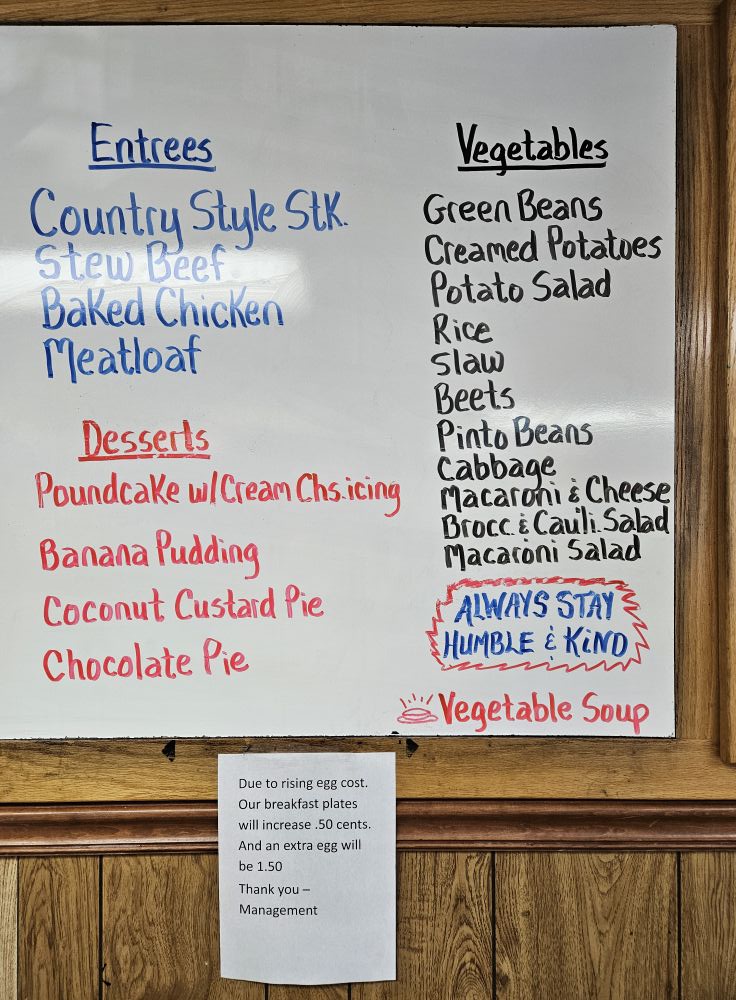 Entrees
Country Style Stk.
Stew Beef
Baked Chicken
Meatloaf
Desserts
Poundcake w/Cream Chs.icing
Banana Pudding
Coconut Custard Pie
Chocolate Pie
Vegetables
Green Beans
Creamed Potatoes
Potato Salad
Rice
Slaw
Beets
Pinto Beans
Cabbage
Macaroni & Cheese
Brocc. & Cauli. Salad
Macaroni Salad
ALWAYS STAY
HUMBLE & KiND
Vegetable Soup
Due to rising egg cost.
Our breakfast plates
will increase .50 cents.
And an extra egg will
be 1.50
Thank you –
Management